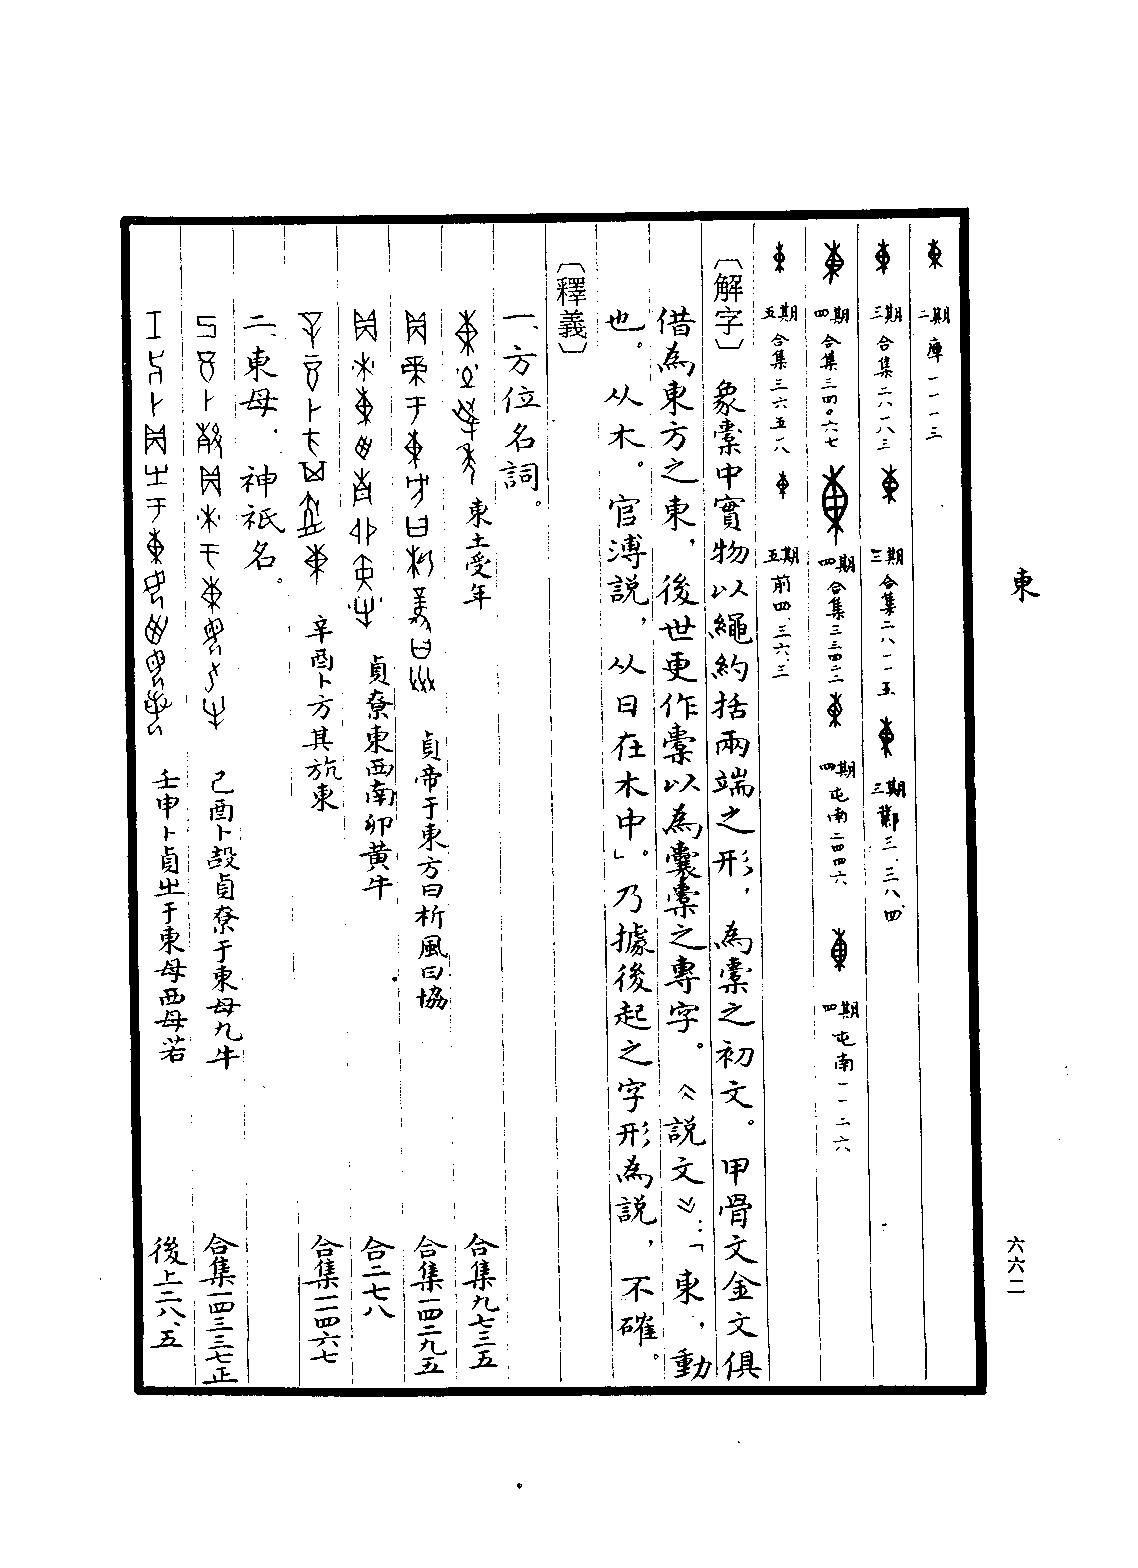 東
六六二
二期 庫一一一三
三期 合集二八一八三 三期 合集二八一一五 三期 鄴三.三八.四
四期 合集三四〇六七 四期 合集三三四二二 四期 屯南二四四六 四期 屯南一一二六
五期 合集三六五一八 五期 前四.三六.三
〔解字〕 象橐中實物以繩約括兩端之形，為橐之初文。甲骨文金文俱
借為東方之東，後世更作橐以為囊橐之專字。《說文》：「東，動
也。从木。官溥說，从日在木中」。乃據後起之字形為說，不確。
〔釋義〕
一、方位名詞。
東土受年 合集九七三五
貞帝于東方曰析風曰協 合集一四二九五
貞尞東西南卯黃牛 合二七八
辛酉卜方其旂東 合集一一四六七
二、東母，神祇名。
己酉卜㱿貞尞于東母九牛 合集一四三三七正
壬申卜貞㞢于東母西母若 後上二八.五